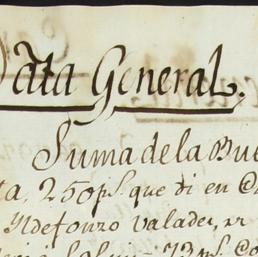 Data General.
Suma de la Bue
ta, 250 ps. que di en
Yldefonzo Valades, er
73 ps. Co